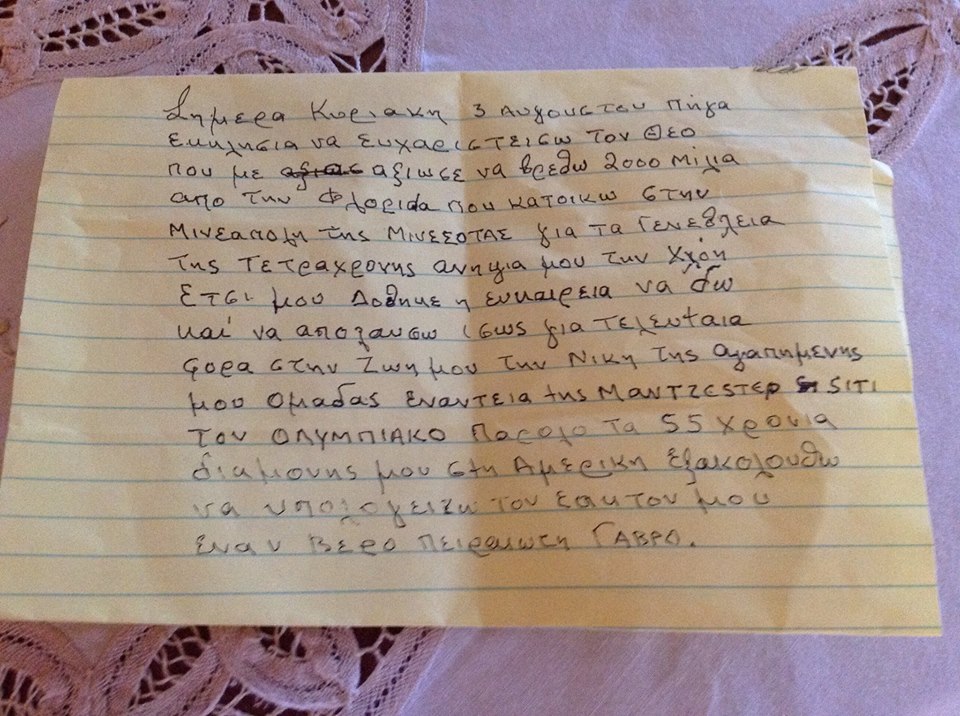 Σημερα Κυριακη 3 Αυγουστου Πηγα
εκκλησια να ευχαριστεισω τον Θεο
που με αξιας αξιωσε να βρεθω 2000 Μιλια
απο την Φλοριdα που κατοικω στην
Μινεαπολη της ΜινεσοταS για τα Γενεθλεια
της τετραχρονης ανηψια μου την Χλόη
Ετσι μου Δοθηκε η ευκαιρεια να δω
και να απολαυσω ισως για τελευταια
φορα στην Ζωη μου την Νικη της αγαπημενης
μου Ομαδας εναντεια της ΜαντζεSτερ SιTι
τον ΟΛΥΜΠΙΑΚΟ Παρολο τα 55 χρονια
διαμονης μου στη Αμερικη εξακολουθω
να υπολογειζω τον εαυτον μου
εναν Βερο Πειραιωτη ΓΑΒΡΟ.